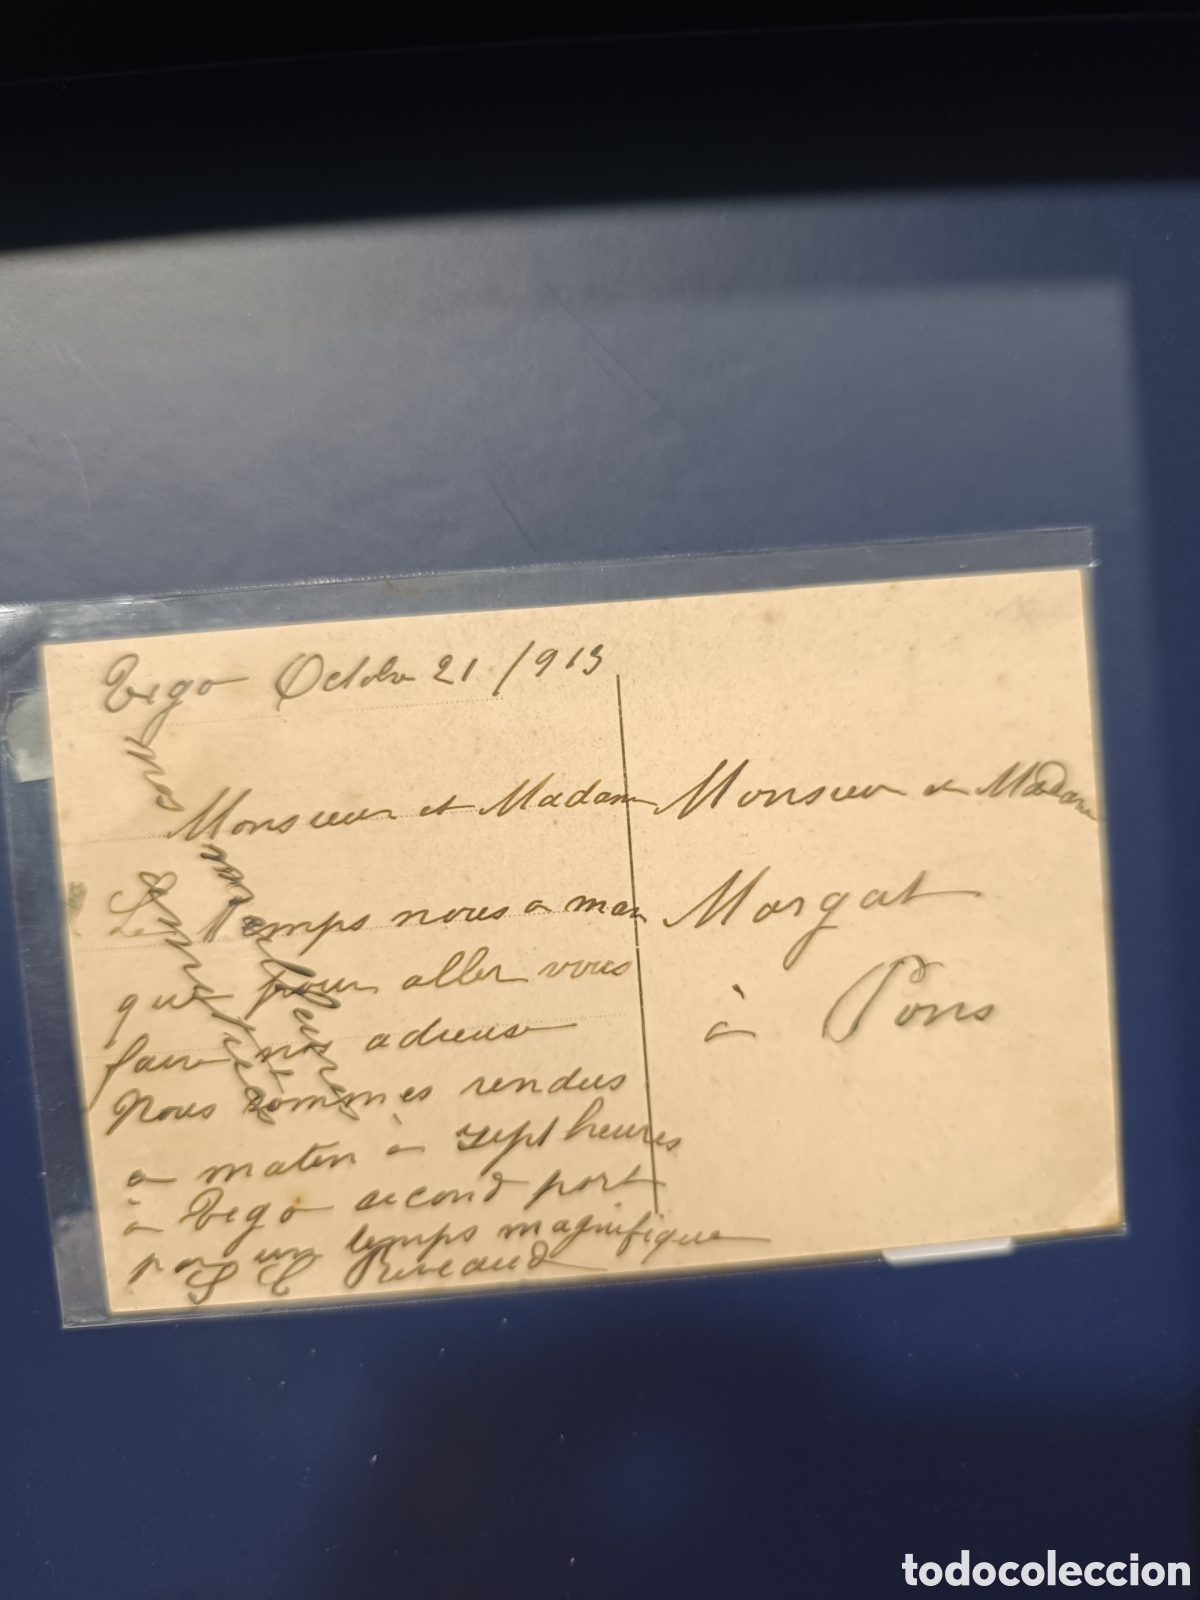 Vigo Octobre 21 / 1913
Monsieur et Madame
Le temps nous a man
que pour aller vous
faire nos adieuse
Nous sommes rendus
a maten a sept heures
a Vigo second port
par un temps magnifique
L C Riveaud
nos meilleures
amitiés
Monsieur et Madame
Morgat
à Pons
todocoleccion